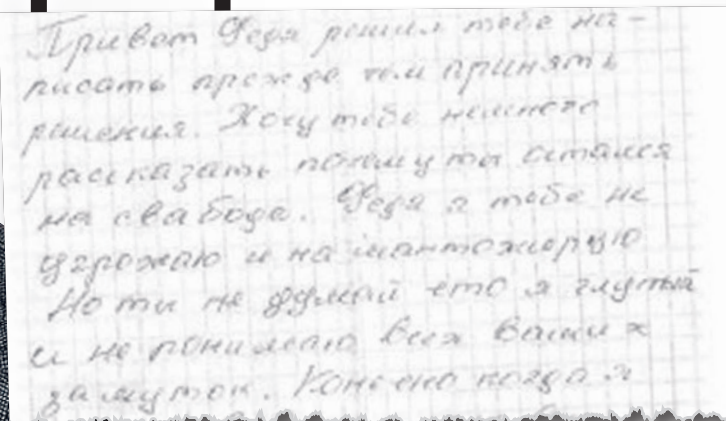 Привет Федя решил тебе на-
писать прежде чем принять
решения. Хочу тебе немного
рассказать почему ты остался
на свабоде. Федя я тебе не
угрожаю и на шантожирую
Но ты не думай что я глупый
и не понимаю всех ваших
замуток. Конечно когда я